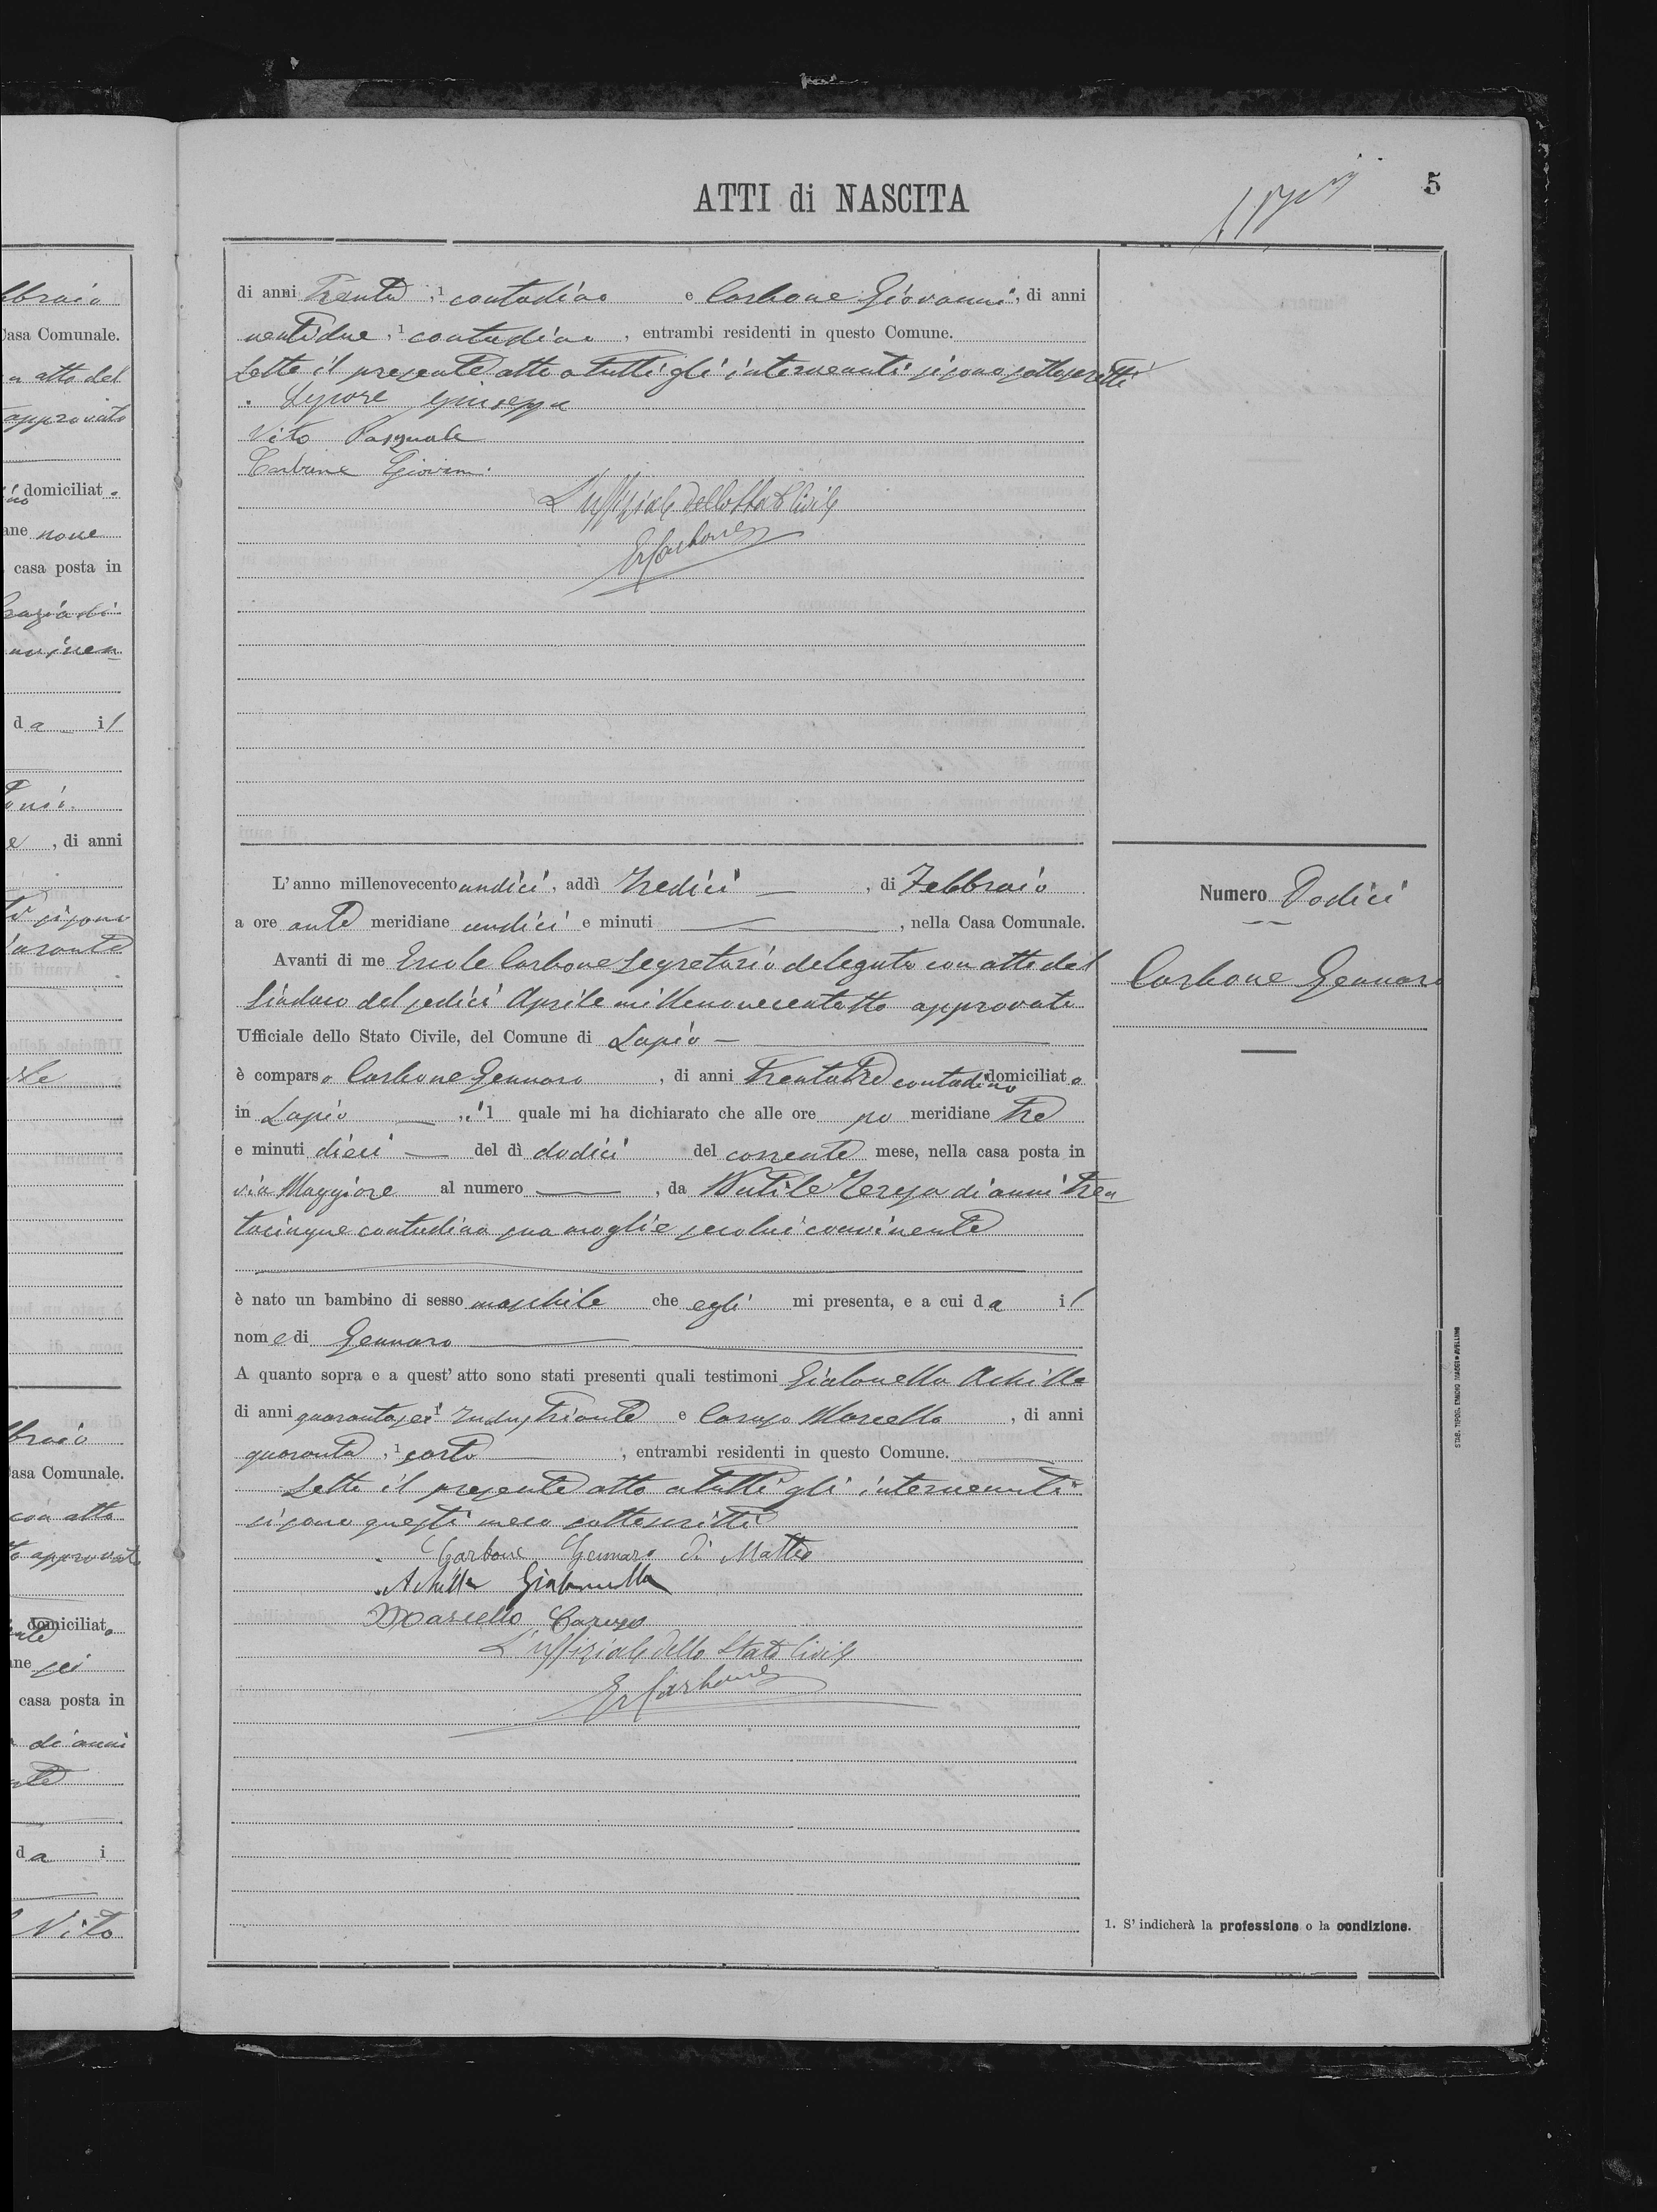 ATTI di NASCITA
5
di anni Trenta, 1 contadino e Carbone Giovanni, di anni
ventidue, 1 contadino, entrambi residenti in questo Comune.
Letto il presente atto a tutti gli intervenuti si sono sottoscritti
Lepore Giuseppe
Vito Pasquale
Carbone Giovanni
L'uffiziale dello Stato Civile
ErCarbone
L'anno millenovecento undici, addì Tredici, di Febbraio
a ore ante meridiane undici e minuti, nella Casa Comunale.
Avanti di me Ercole Carbone Segretario delegato con atto del
Sindaco del sedici Aprile millenovecentotto approvato
Ufficiale dello Stato Civile, del Comune di Lapio
è comparso Carbone Gennaro, di anni Trentatre contadino domiciliato
in Lapio, il quale mi ha dichiarato che alle ore po meridiane tre
e minuti dieci del dì dodici del corrente mese, nella casa posta in
via Maggiore al numero, da Teresa di anni tren
tacinque contadina sua moglie secolui convivente
è nato un bambino di sesso maschile che egli mi presenta, e a cui da il
nome di Gennaro
A quanto sopra e a quest'atto sono stati presenti quali testimoni Gialonella Achille
di anni quarantasei 1 Industriante e Caruso Marcello, di anni
quaranta, 1 sarto, entrambi residenti in questo Comune.
Letto il presente atto a tutti gli intervenuti
si sono questi meco sottoscritti
Carbone Gennaro di Matteo
Achille Gialonella
Marcello Caruso
L'uffiziale dello Stato Civile
ErCarbone
Numero Dodici
Carbone Gennaro
1. S'indicherà la professione o la condizione.
STAB. TIPOG. ENNIO MAGGI AVELLINO